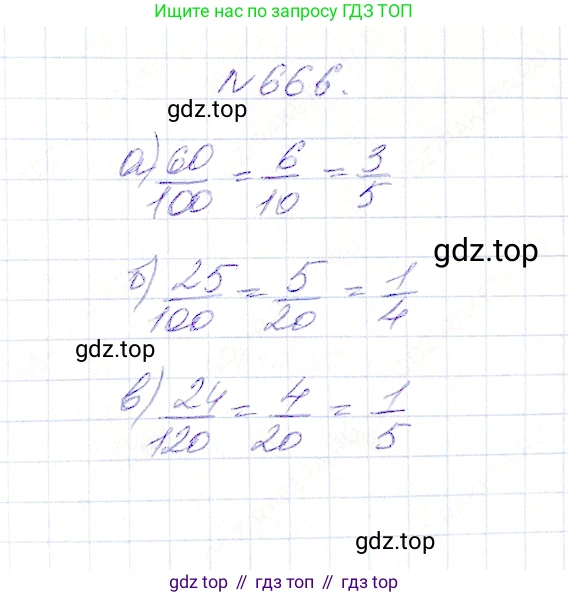 Ищите нас по запросу ГДЗ ТОП
№ 666.
gdz.top
а) 60/100 = 6/10 = 3/5
gdz.top
б) 25/100 = 5/20 = 1/4
gdz.top
в) 24/120 = 4/20 = 1/5
gdz.top
gdz top // гдз топ // гдз.top